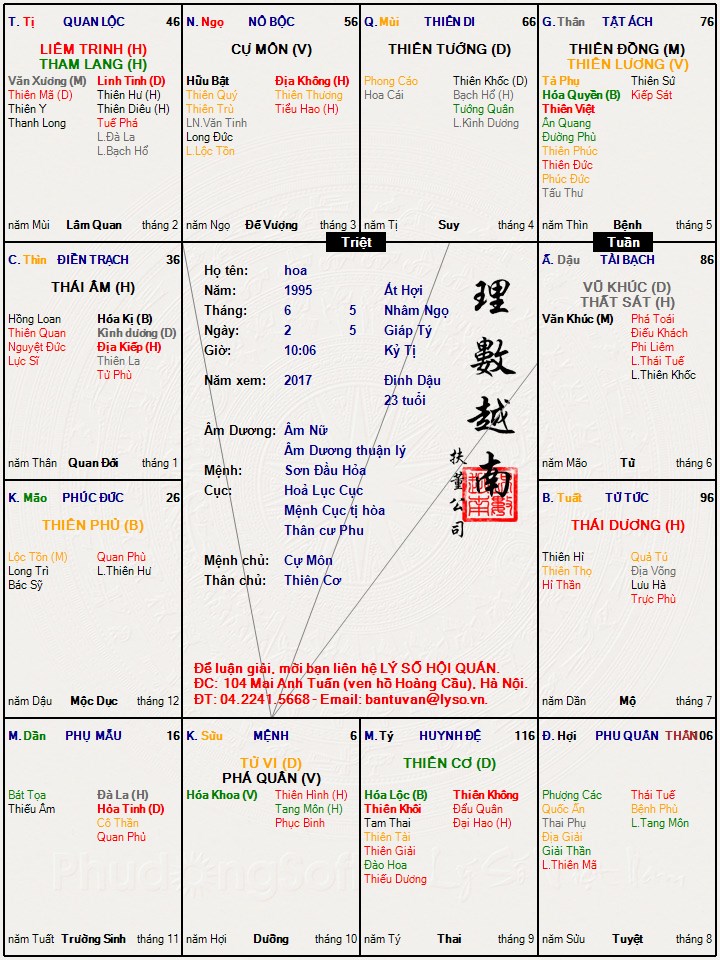 T. Tị QUAN LỘC 46
LIÊM TRINH (H)
THAM LANG (H)
Văn Xương (M) Linh Tinh (D)
Thiên Mã (D) Thiên Hư (H)
Thiên Y Thiên Diêu (H)
Thanh Long Tuế Phá
L.Đà La
L.Bạch Hổ
năm Mùi Lâm Quan tháng 2
N. Ngọ NÔ BỘC 56
CỰ MÔN (V)
Hữu Bật Địa Không (H)
Thiên Quý Thiên Thương
Thiên Trù Tiểu Hao (H)
LN.Văn Tinh
Long Đức
L.Lộc Tồn
năm Ngọ Đế Vượng tháng 3
Q. Mùi THIÊN DI 66
THIÊN TƯỚNG (D)
Phong Cáo Thiên Khốc (D)
Hoa Cái Bạch Hổ (H)
Tướng Quân
L.Kình Dương
năm Tị Suy tháng 4
G. Thân TẬT ÁCH 76
THIÊN ĐỒNG (M)
THIÊN LƯƠNG (V)
Tả Phụ Thiên Sứ
Hóa Quyền (B) Kiếp Sát
Thiên Việt
Ân Quang
Đường Phù
Thiên Phúc
Thiên Đức
Phúc Đức
Tấu Thư
năm Thìn Bệnh tháng 5
Triệt
Tuần
C. Thìn ĐIỀN TRẠCH 36
THÁI ÂM (H)
Hồng Loan Hóa Kị (B)
Thiên Quan Kình dương (D)
Nguyệt Đức Địa Kiếp (H)
Lực Sĩ Thiên La
Tử Phù
năm Thân Quan Đới tháng 1
Họ tên: hoa
Năm: 1995 Ất Hợi
Tháng: 6 5 Nhâm Ngọ
Ngày: 2 5 Giáp Tý
Giờ: 10:06 Kỷ Tị
Năm xem: 2017 Đinh Dậu
23 tuổi
Âm Dương: Âm Nữ
Âm Dương thuận lý
Mệnh: Sơn Đầu Hỏa
Cục: Hoả Lục Cục
Mệnh Cục tị hòa
Thân cư Phu
Mệnh chủ: Cự Môn
Thân chủ: Thiên Cơ
理數越南
扶董公司
Để luận giải, mời bạn liên hệ LÝ SỐ HỘI QUÁN.
ĐC: 104 Mai Anh Tuấn (ven hồ Hoàng Cầu), Hà Nội.
ĐT: 04.2241.5668 - Email: bantuvan@lyso.vn.
Ấ. Dậu TÀI BẠCH 86
VŨ KHÚC (D)
THẤT SÁT (H)
Văn Khúc (M) Phá Toái
Điếu Khách
Phi Liêm
L.Thái Tuế
L.Thiên Khốc
năm Mão Tử tháng 6
K. Mão PHÚC ĐỨC 26
THIÊN PHỦ (B)
Lộc Tồn (M) Quan Phù
Long Trì L.Thiên Hư
Bác Sỹ
năm Dậu Mộc Dục tháng 12
B. Tuất TỬ TỨC 96
THÁI DƯƠNG (H)
Thiên Hỉ Quả Tú
Thiên Thọ Địa Võng
Hỉ Thần Lưu Hà
Trực Phù
năm Dần Mộ tháng 7
M. Dần PHỤ MẪU 16
Bát Tọa Đà La (H)
Thiếu Âm Hỏa Tinh (D)
Cô Thần
Quan Phủ
năm Tuất Trường Sinh tháng 11
K. Sửu MỆNH 6
TỬ VI (D)
PHÁ QUÂN (V)
Hóa Khoa (V) Thiên Hình (H)
Tang Môn (H)
Phục Binh
năm Hợi Dưỡng tháng 10
M. Tý HUYNH ĐỆ 116
THIÊN CƠ (D)
Hóa Lộc (B) Thiên Không
Thiên Khôi Đẩu Quân
Tam Thai Đại Hao (H)
Thiên Tài
Thiên Giải
Đào Hoa
Thiếu Dương
năm Tý Thai tháng 9
Đ. Hợi PHU QUÂN THÂN 106
Phượng Các Thái Tuế
Quốc Ấn Bệnh Phù
Thai Phụ L.Tang Môn
Địa Giải
Giải Thần
L.Thiên Mã
năm Sửu Tuyệt tháng 8